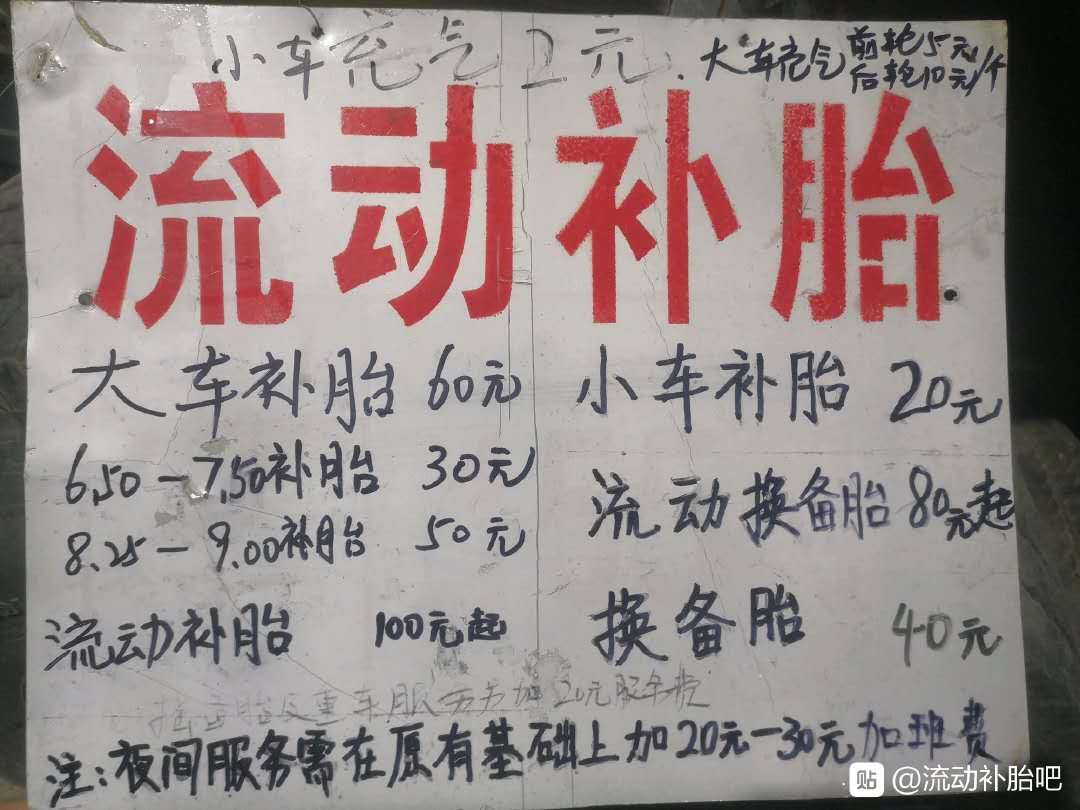 小车充气2元.
大车充气 前轮5元 后轮10元/个
流动补胎
大车补胎 60元
小车补胎 20元
6.50-7.50补胎 30元
流动换备胎 80元起
8.25-9.00补胎 50元
流动补胎 100元起
换备胎 40元
重车服 加20元服务费
注:夜间服务需在原有基础上加20元-30元加班费
贴 @流动补胎吧